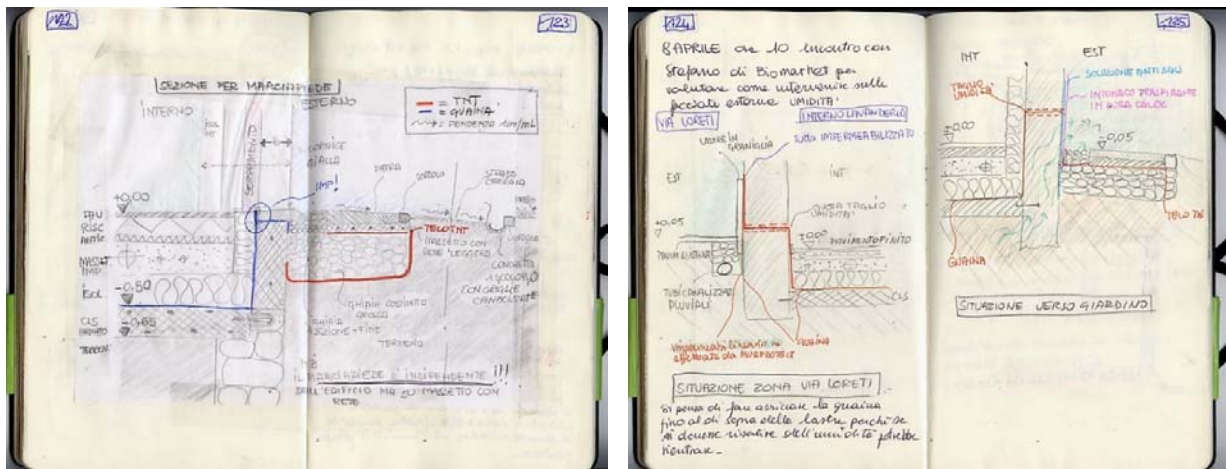 122
123
SEZIONE PER MARCIAPIEDE
INTERNO
ESTERNO
= TNT
= GUAINA
= PENDENZA 1cm/mL
CORNICE
GIALLA
IMP!
PIETRA
CORDOLO
STRADO
±0,00
PAV
RISC
MASSET
IMP.
ISOL
-0,50
CLS
-0,65
TELO TNT
MASSETTO CON
RETE LEGGERO
GHIAIE COSTIPATO
GROSSA
GHIAIA
FINE
TERRENO
CON GRIGLIE
IL MARCIAPIEDE È INDIPENDENTE !!!
DALL'EDIFICIO MA SU MASSETTO CON
RETE
124
125
8 APRILE ore 10 incontro con
Stefano di Biomarket per
valutare come intervenire sulle
facciate esterne UMIDITÀ
VIA LORETI
INTERNO LAVANDERIA
TUTTO IMPERMEABILIZZATO
LASTRE IN
GRANIGLIA
EST
INT
QUOTA TAGLIO
UMIDITÀ
+0,05
±0,00
PAVIMENTO FINITO
TUBI CANALIZZAZ.
PLUVIALI
CLS
GUAINA
effettuata da MURPROTEC
SITUAZIONE ZONA VIA LORETI
Si pensa di far arrivare la guaina
fino al di sopra delle lastre perché se
si dovesse risalire dell'umidità potrebbe
rientrare
INT
EST
TAGLIO
UMIDITÀ
SOLUZIONE ANTISALI
INTONACO TRASPIRANTE
IN PURA CALCE
±0,00
-0,05
TELO TNT
GUAINA
SITUAZIONE VERSO GIARDINO